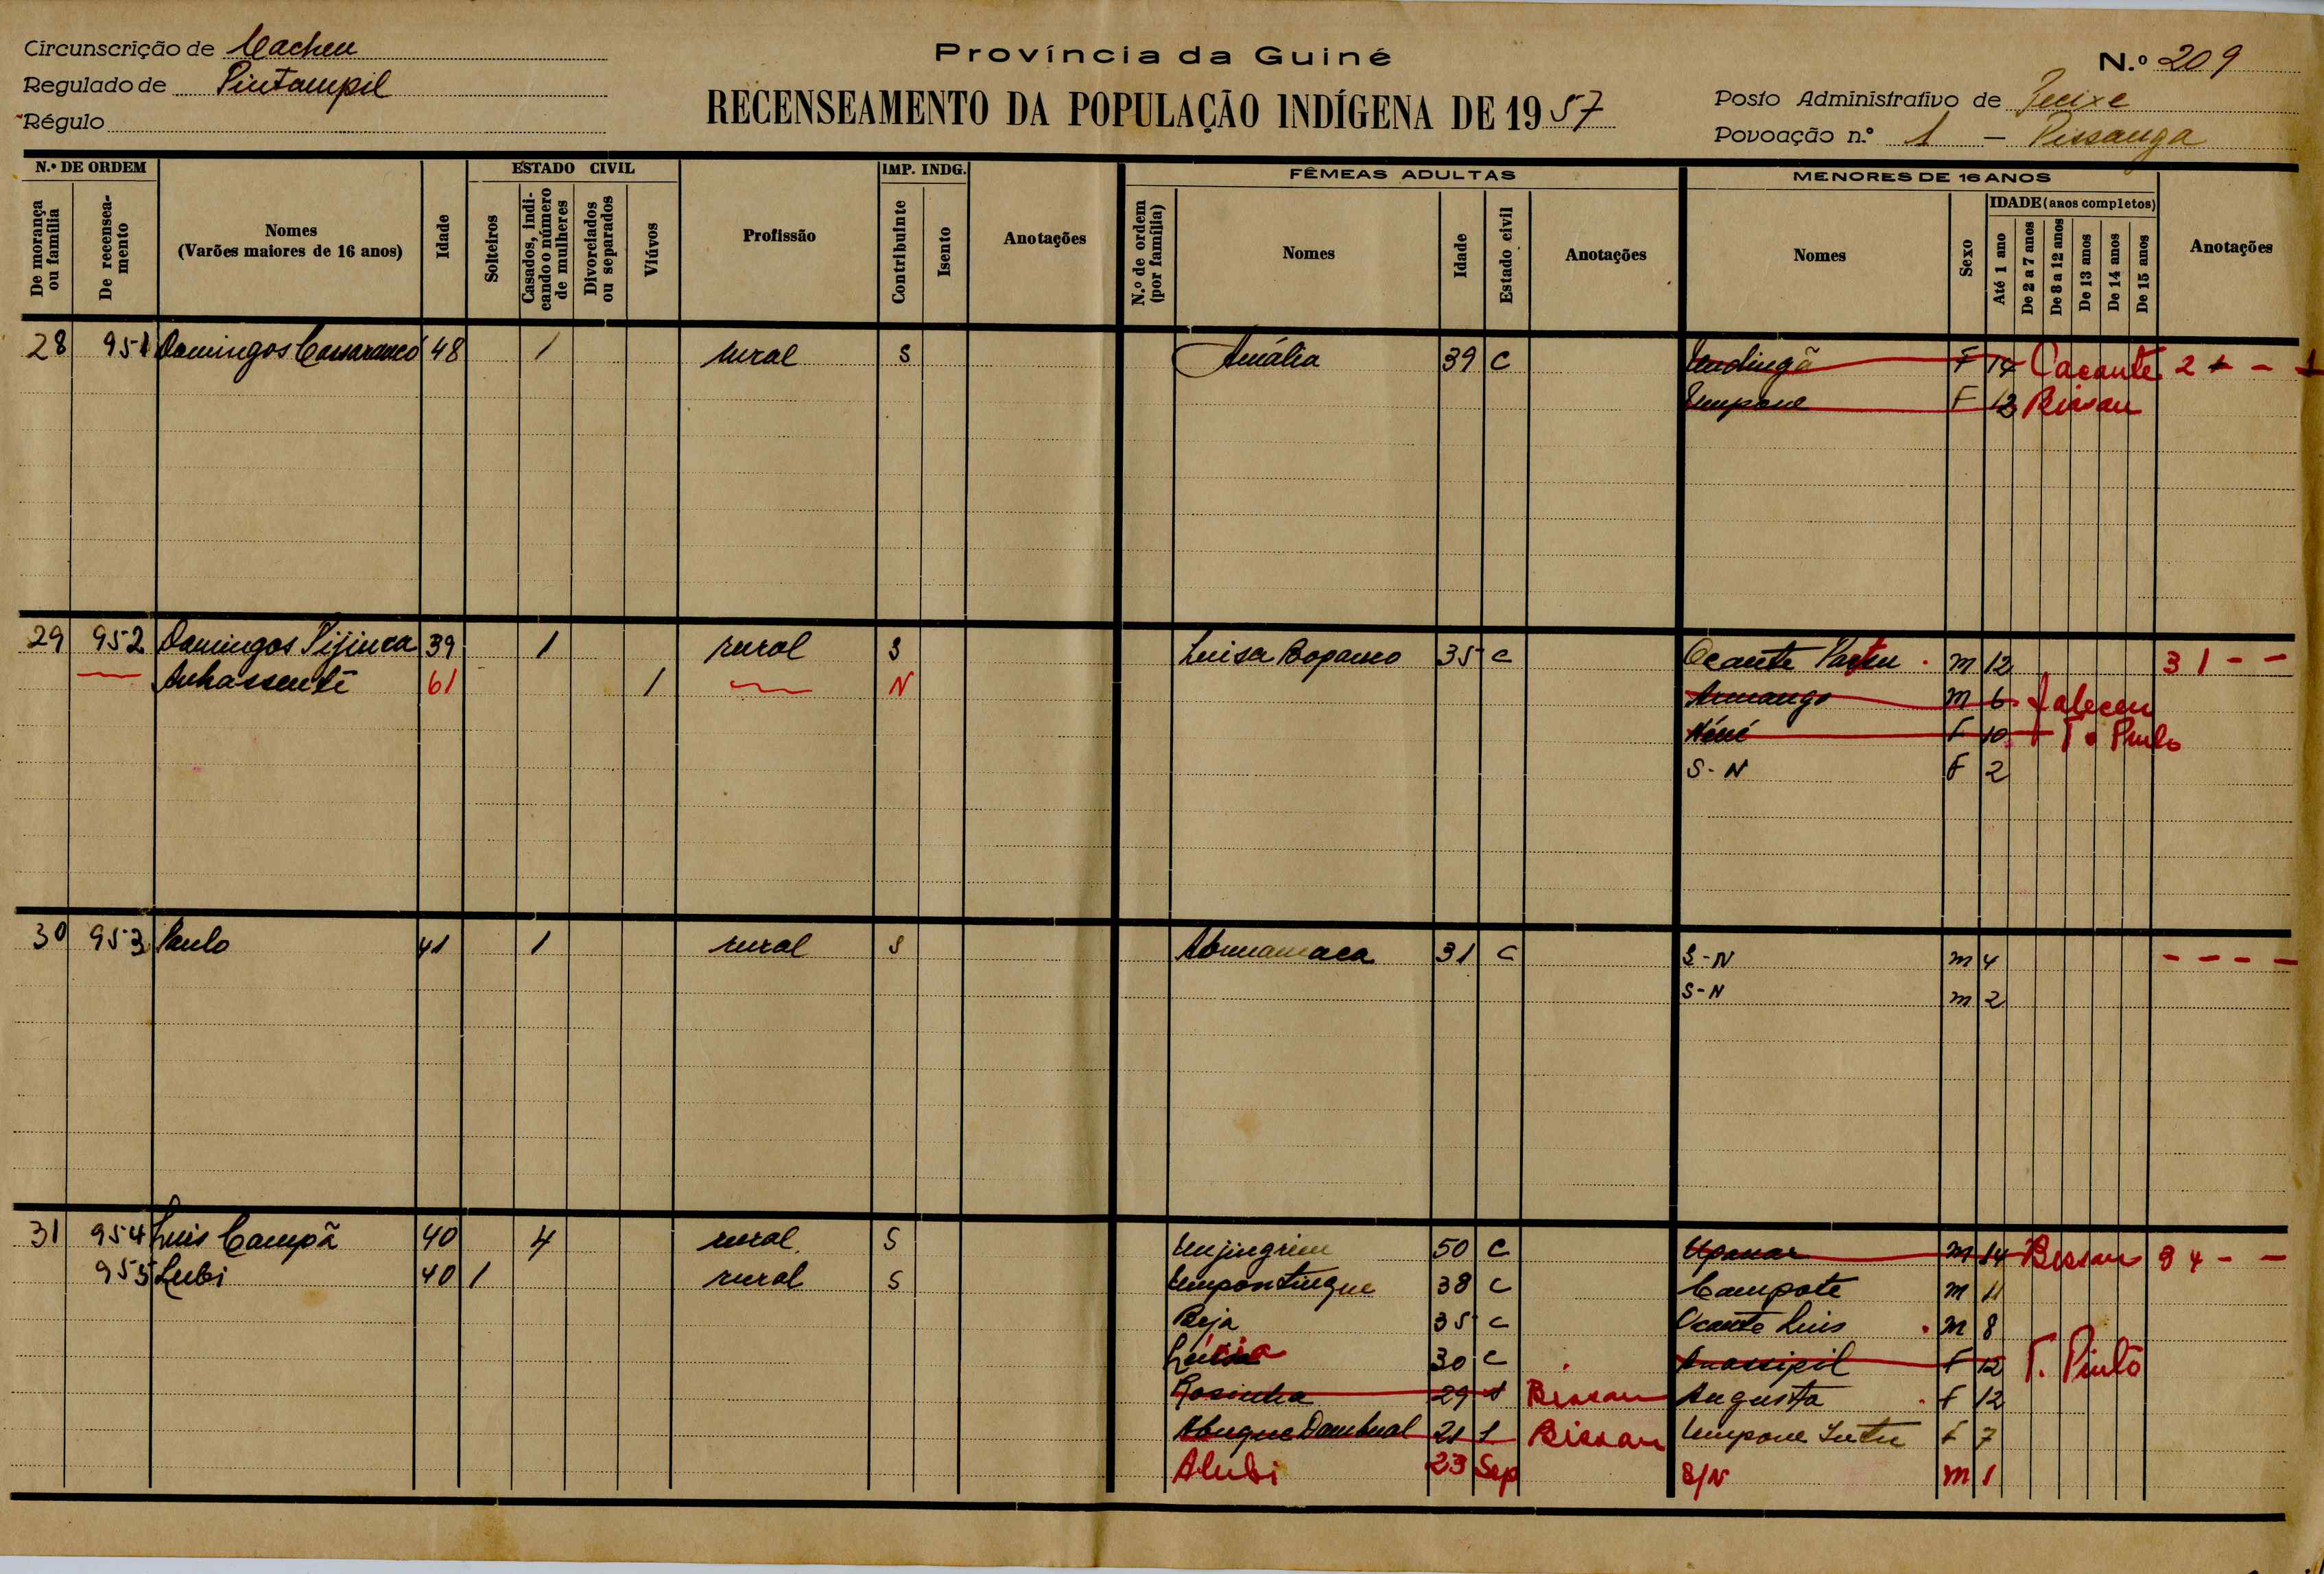 Circunscrição de Cacheu
Província da Guiné
N.º 209
Regulado de Pintampil
RECENSEAMENTO DA POPULAÇÃO INDÍGENA DE 1957
Posto Administrativo de
Régulo
Povoação n.º 1 – Pissanga
N.º DE ORDEM
ESTADO CIVIL
IMP. INDG.
FÊMEAS ADULTAS
MENORES DE 16 ANOS
De morança ou família
De recenseamento
Nomes
(Varões maiores de 16 anos)
Idade
Solteiros
Casados, indicando o número de mulheres
Divorciados ou separados
Viúvos
Profissão
Contribuinte
Isento
Anotações
N.º de ordem (por família)
Nomes
Idade
Estado civil
Anotações
Nomes
Sexo
IDADE (anos completos)
Até 1 ano
De 2 a 7 anos
De 8 a 12 anos
De 13 anos
De 14 anos
De 15 anos
Anotações
28 951 Domingos 48 1 rural S Amália 39 C F 14 Cacante 2 + - 1
Umpone F 12 Bissau
29 952 Domingos Pijinca 39 1 rural S Luisa 35 C Ocante m 12 3 1 - -
61 1 N m 6 Faleceu
Néné F 10 T. Pinto
S-N F 2
30 953 Paulo 41 1 rural S 31 C S-N m 4 - - - -
S-N m 2
31 954 Luis Campã 40 4 rural S 50 C Upanar m 14 Bissau 3 4 - -
955 Lubi 40 1 rural S 38 C Campote m 11
Beja 35 C Ocante Luis m 8
30 C F 12 T. Pinto
Rosinha 29 Bissau Augusta F 12
21 Bissau Umpone F 7
Alubi 23 Sep S/N m 1